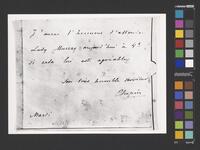 J'aurai l'honneur d'attendre
Lady Murray aujourd'hui à 4h.
si cela lui est agréable,
Son très humble serviteur
Chopin
Mardi